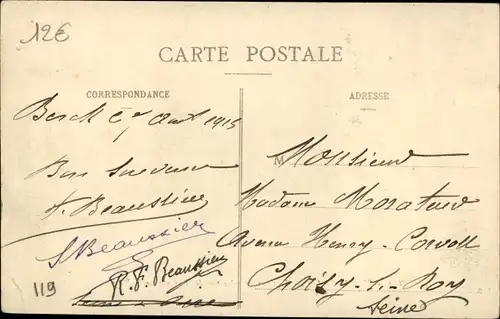 12€
CARTE POSTALE
CORRESPONDANCE
ADRESSE
Berck Août 1915
Bon Souvenir
Beaussier
S Beaussier
R. F. Beaussier
119
Monsieur
Madame
Avenue Henry
Choisy-L-Roy
Seine